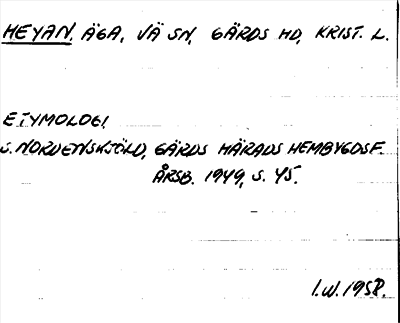 HEYAN, ÄGA, VÄ SN, GÄRDS HD, KRIST. L.
ETYMOLOGI,
S. NORDENSKJÖLD, GÄRDS HÄRADS HEMBYGDSF.
ÅRSB. 1949, S. 45.
I.W. 1958.